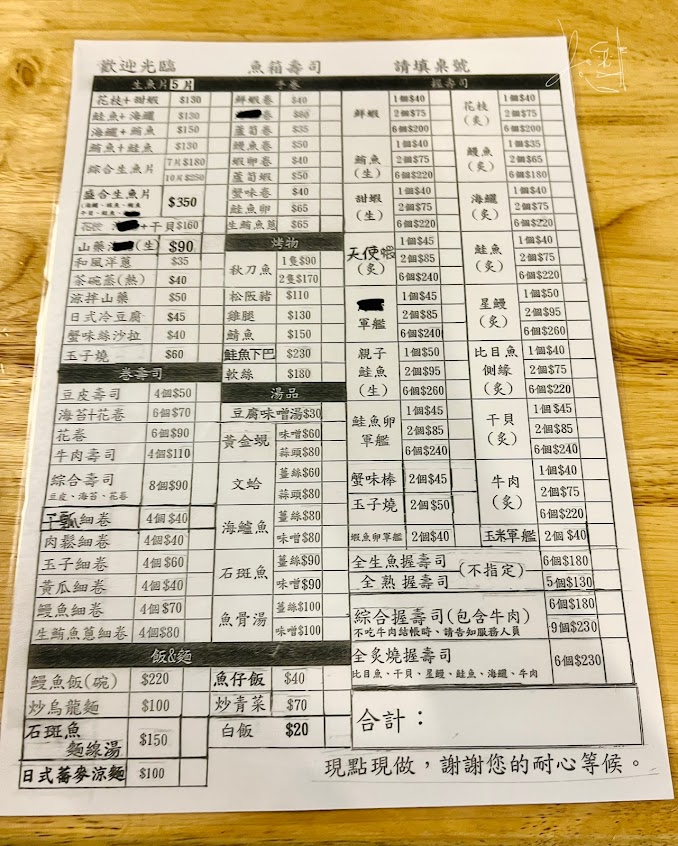 歡迎光臨 魚箱壽司 請填桌號
生魚片5片
花枝+甜蝦 $130
鮭魚+海鱺 $130
海鱺+鮪魚 $150
鮪魚+鮭魚 $130
綜合生魚片 7片$180
10片$250
盛合生魚片 $350
花枝 +干貝 $160
山藥 (生) $90
和風洋蔥 $35
茶碗蒸(熱) $40
涼拌山藥 $50
日式冷豆腐 $45
蟹味絲沙拉 $40
玉子燒 $60
卷壽司
豆皮壽司 4個$50
海苔+花卷 6個$70
花卷 6個$90
牛肉壽司 4個$110
綜合壽司 8個$90
豆皮、海苔、花卷
干瓢細卷 4個$40
肉鬆細卷 4個$40
玉子細卷 4個$60
黃瓜細卷 4個$40
鰻魚細卷 4個$70
生鮪魚蔥細卷 4個$80
手卷
鮮蝦卷 $40
卷
蘆筍卷 $35
鰻魚卷 $50
蝦卵卷 $40
蘆筍蝦 $50
蟹味卷 $40
鮭魚卵 $65
生鮪魚蔥 $65
烤物
秋刀魚 1隻$90
2隻$170
松阪豬 $110
雞腿 $130
鯖魚 $150
鮭魚下巴 $230
軟絲 $180
湯品
豆腐味噌湯$30
黃金蜆 味噌$60
蒜頭$80
文蛤 薑絲$60
蒜頭$80
海鱸魚 薑絲$80
味噌$80
石斑魚 薑絲$90
味噌$90
魚骨湯 薑絲$100
味噌$100
飯&麵
鰻魚飯(碗) $220
炒烏龍麵 $100
石斑魚
麵線湯 $150
日式蕎麥涼麵 $100
魚仔飯 $40
炒青菜 $70
白飯 $20
握壽司
鮮蝦 1個$40
2個$75
6個$200
鮪魚(生) 1個$40
2個$75
6個$220
甜蝦(生) 1個$40
2個$75
6個$220
天使蝦(炙) 1個$45
2個$85
6個$240
軍艦 1個$45
2個$85
6個$240
親子鮭魚(生) 1個$50
2個$95
6個$260
鮭魚卵軍艦 1個$45
2個$85
6個$240
蟹味棒 2個$45
玉子燒 2個$50
蝦魚卵軍艦 2個$40
花枝(炙) 1個$40
2個$75
6個$200
鰻魚(炙) 1個$35
2個$65
6個$180
海鱺(炙) 1個$40
2個$75
6個$220
鮭魚(炙) 1個$40
2個$75
6個$220
星鰻(炙) 1個$50
2個$95
6個$260
比目魚側緣(炙) 1個$40
2個$75
6個$220
干貝(炙) 1個$45
2個$85
6個$240
牛肉(炙) 1個$40
2個$75
6個$220
玉米軍艦 2個$40
全生魚握壽司 (不指定) 6個$180
全熟握壽司 5個$130
綜合握壽司(包含牛肉) 6個$180
不吃牛肉結帳時、請告知服務人員 9個$230
全炙燒握壽司 6個$230
比目魚、干貝、星鰻、鮭魚、海鱺、牛肉
合計：
現點現做，謝謝您的耐心等候。